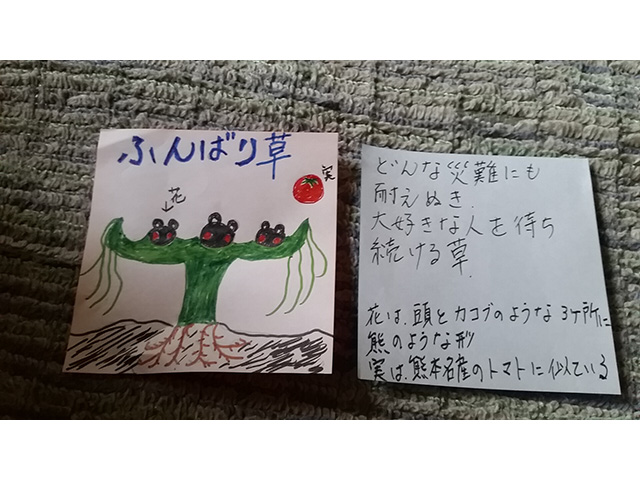 ふんばり草
実
花
どんな災難にも
耐えぬき
大好きな人を待ち
続ける草
花は、頭と力コブのような3ヶ所に
熊のような形
実は、熊本名産のトマトに似ている